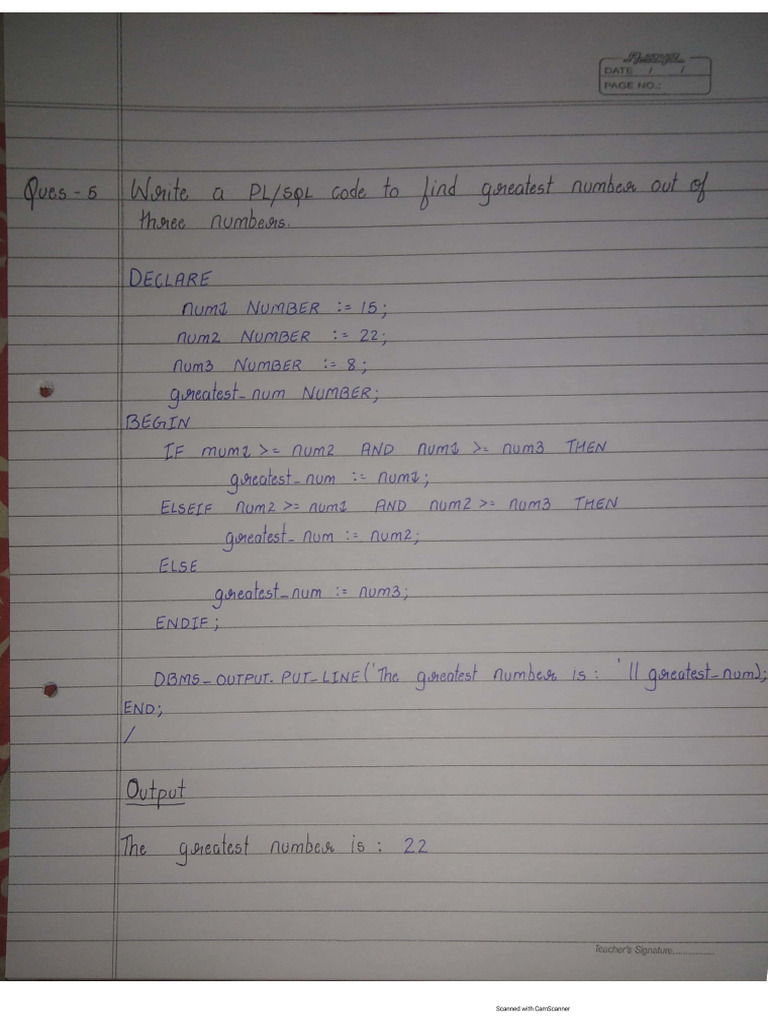 DATE / /
PAGE NO.:
Ques - 5 Write a PL/SQL code to find greatest number out of
three numbers.
DECLARE
num1 NUMBER := 15;
num2 NUMBER := 22;
num3 NUMBER := 8;
greatest_num NUMBER;
BEGIN
IF mum1 >= num2 AND num1 >= num3 THEN
greatest_num := num1;
ELSEIF num2 >= num1 AND num2 >= num3 THEN
greatest_num := num2;
ELSE
greatest_num := num3;
ENDIF;
DBMS_OUTPUT.PUT_LINE('The greatest number is: ' || greatest_num);
END;
/
Output
The greatest number is : 22
Teacher's Signature..............
Scanned with CamScanner